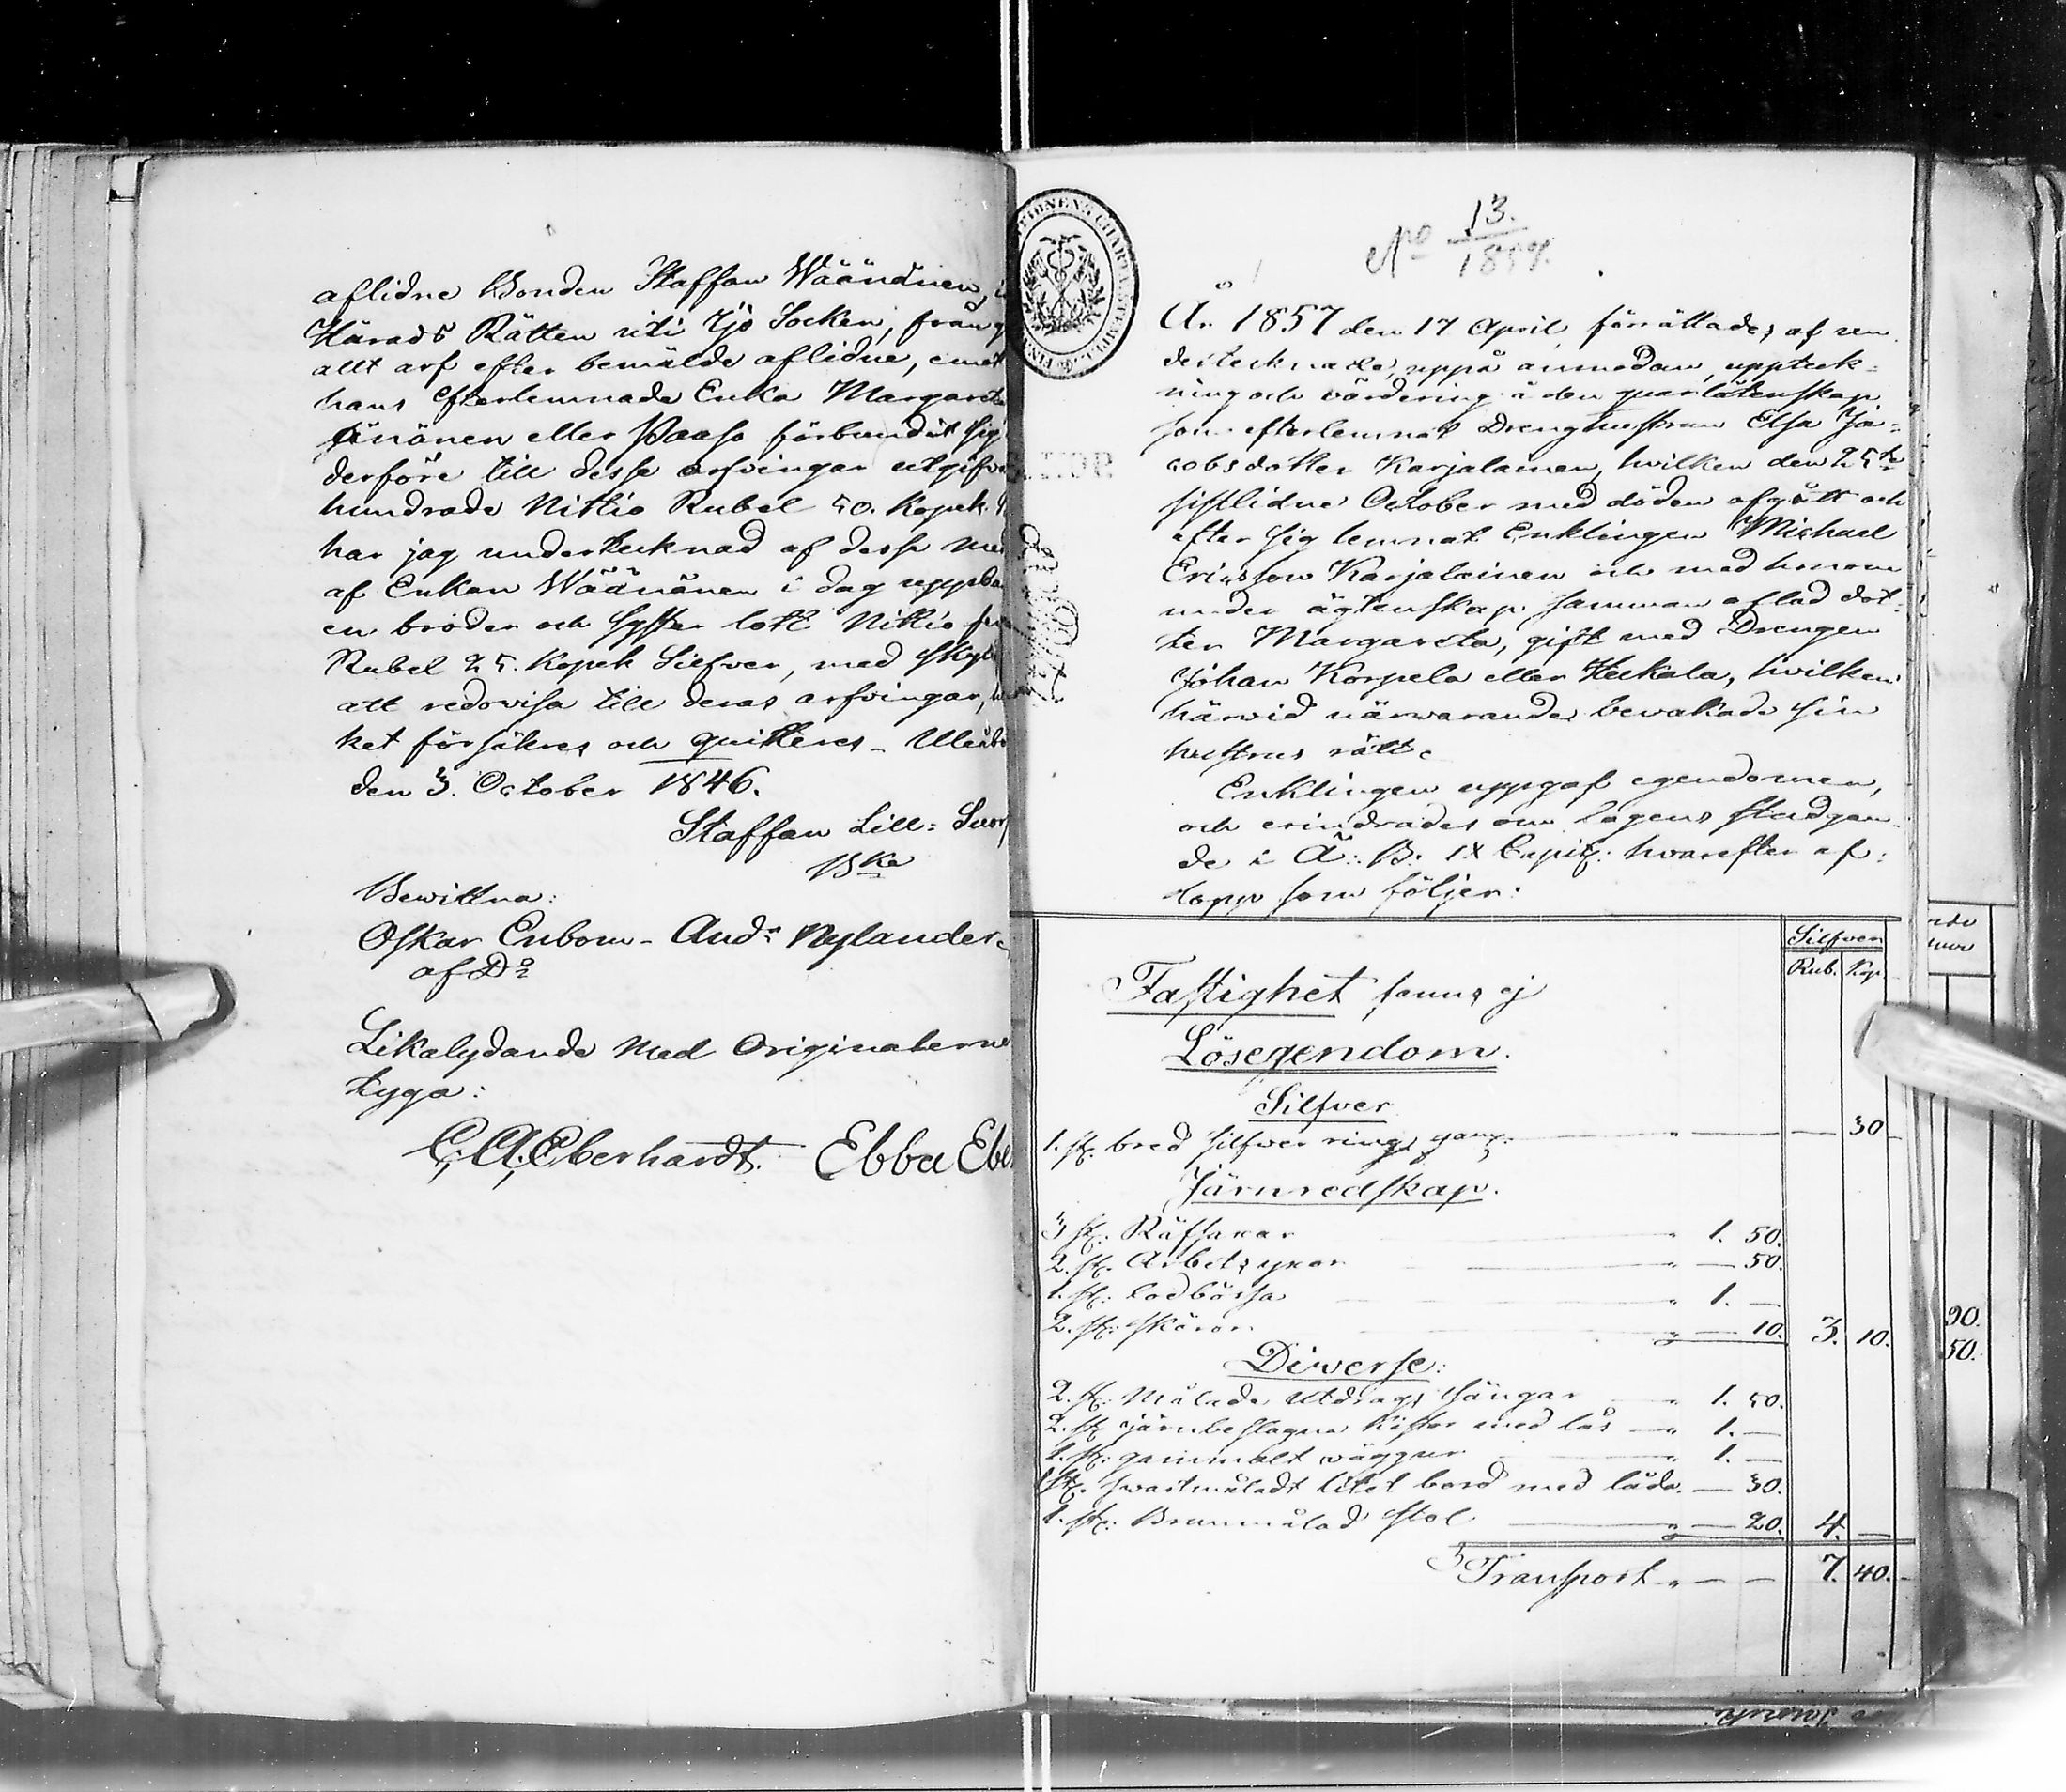 aflidne Bonden Staffan Wäänänen, i
Härads Rätten uti Ijo Socken, från
allt arf efter bemälde aflidne, emot
hans efterlemnade Enka Margareta
eller Paaso förbundit sig
derföre till desse arfvingar utgifva
hundrade Nittio Rubel 50. Kopek
har jag undertecknad af desse
af Enkan Wäänänen i dag uppbu
en broder och syster lott Nittio
Rubel 25. Kopek Silfver, med skyl
att redovisa till deras arfvingar,
ket försäkras och quitteras. Uleåb
den 3. October 1846.
Staffan Lill-
Bewittna:
Oskar Enbom. And: Nylander.
af Do
Likalydande Med Originalerne
tyga:
C. A. Eberhardt. Ebba Ebe
No 13.
1857.
År 1857 den 17 April, förrättades af un
dertecknade, uppå anmodan, uppteck-
ning och värdering å den quarlåtenskap
som efterlemnat Drenghustrun Elsa Ja-
cobsdotter Karjalainen, hvilken den 25te
sistlidne October med döden afgått och
efter sig lemnat Enklingen Michael
Ericsson Karjalainen och med honom
under ägtenskap samman aflad dot-
ter Margareta, gift med Drengen
Johan Korpela eller Heikala, hvilken
härvid närwarande, bevakade sin
hustrus rätt.
Enklingen uppgaf egendomen,
och erindrades om lagens stadgan-
de i Ä: B. IX Capitz: hvarefter af-
lopp som följer:
Silfver
Rub. Kop.
Fastighet fanns ej
Lösegendom.
Silfver
1. st: bred silfver ring, gamz: — 30
Järnredskap.
3 st: Räfsaxar 1. 50.
2. st: Arbets yxor — 50.
1. st: Lodbössa 1. —
2. st: skäror — 10. 3. 10.
Diverse:
2. st: Målade Utdrags sängar 1. 50.
2. st: järnbeslagna kistor med lås 1. —
1. st: gammalt väggur 1. —
1 st: swartmåladt litet bord med låda — 30.
1. st: Brunmålad stol — 20. 4. —
Transport — — 7. 40.
90.
50.